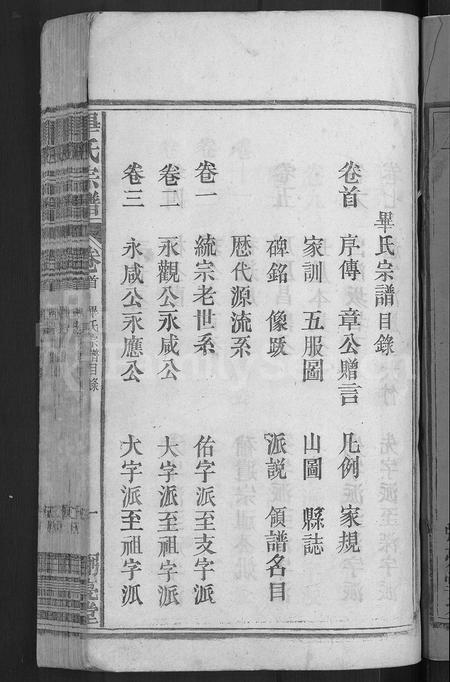 畢氏宗譜目錄
卷首 序傳 章公贈言 凡例 家規
家訓 五服圖 山圖 縣誌
碑銘 像跋 派説 領譜名目
歷代源流系
卷一 統宗老世系 佑字派至支字派
卷二 永觀公永咸公 大字派至祖字派
卷三 永咸公永應公 大字派至祖字派
畢氏宗譜 卷首 畢氏宗譜目錄 一